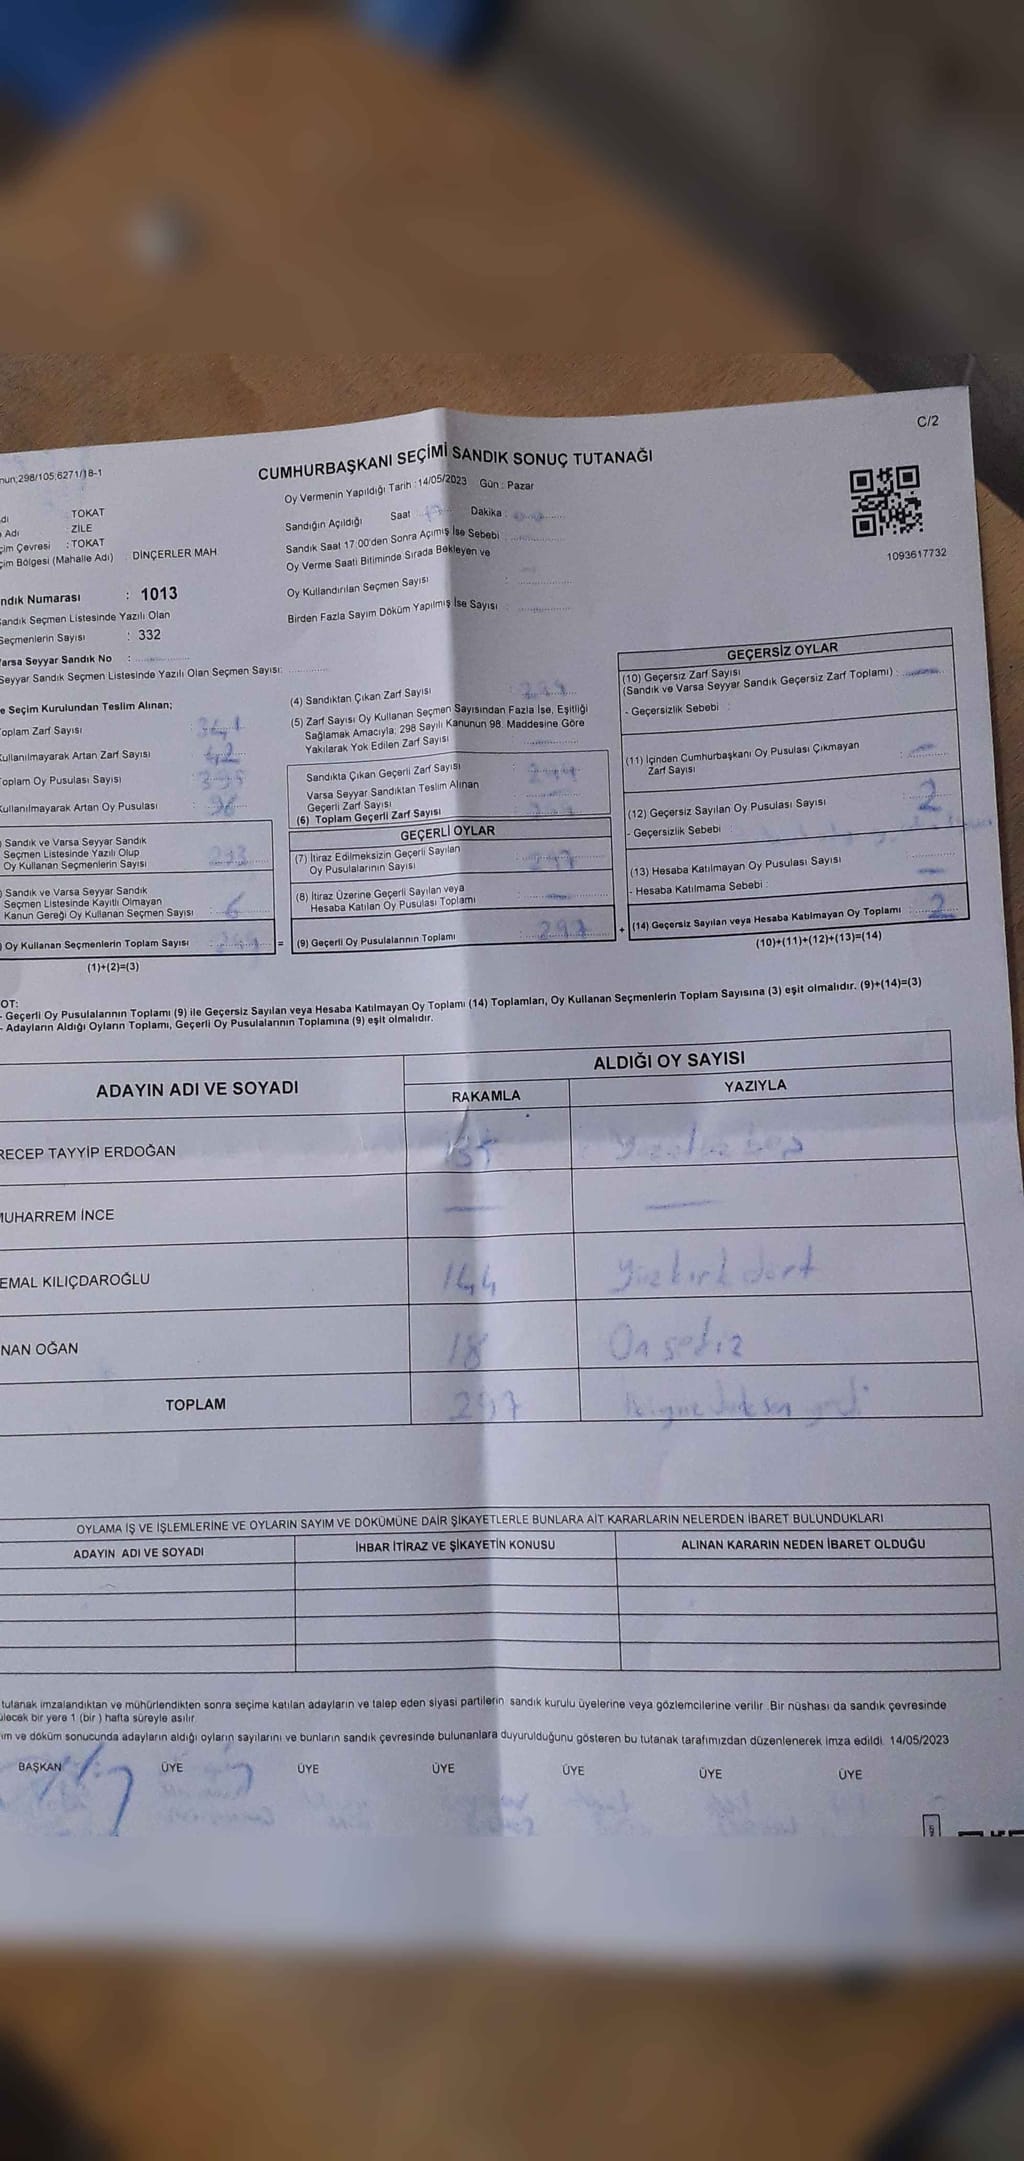 C/2
nun;298/105;6271/18-1
CUMHURBAŞKANI SEÇİMİ SANDIK SONUÇ TUTANAĞI
Oy Vermenin Yapıldığı Tarih : 14/05/2023 Gün : Pazar
dı : TOKAT
Adı : ZİLE
çim Çevresi : TOKAT
çim Bölgesi (Mahalle Adı) : DİNÇERLER MAH
Sandığın Açıldığı Saat 17 Dakika
Sandık Saat 17:00'den Sonra Açımış İse Sebebi
Oy Verme Saati Bitiminde Sırada Bekleyen ve
Oy Kullandırılan Seçmen Sayısı :
Birden Fazla Sayım Döküm Yapılmış İse Sayısı :
1093617732
ndık Numarası : 1013
Sandık Seçmen Listesinde Yazılı Olan
Seçmenlerin Sayısı : 332
Varsa Seyyar Sandık No :
Seyyar Sandık Seçmen Listesinde Yazılı Olan Seçmen Sayısı:
e Seçim Kurulundan Teslim Alınan;
oplam Zarf Sayısı 341
Kullanılmayarak Artan Zarf Sayısı 42
Toplam Oy Pusulası Sayısı 395
Kullanılmayarak Artan Oy Pusulası 96
) Sandık ve Varsa Seyyar Sandık
Seçmen Listesinde Yazılı Olup
Oy Kullanan Seçmenlerin Sayısı : 293
) Sandık ve Varsa Seyyar Sandık
Seçmen Listesinde Kayıtlı Olmayan
Kanun Gereği Oy Kullanan Seçmen Sayısı : 6
) Oy Kullanan Seçmenlerin Toplam Sayısı : 299 =
(1)+(2)=(3)
(4) Sandıktan Çıkan Zarf Sayısı : 299
(5) Zarf Sayısı Oy Kullanan Seçmen Sayısından Fazla İse, Eşitliği
Sağlamak Amacıyla; 298 Sayılı Kanunun 98. Maddesine Göre
Yakılarak Yok Edilen Zarf Sayısı :
Sandıkta Çıkan Geçerli Zarf Sayısı : 299
Varsa Seyyar Sandıktan Teslim Alınan
Geçerli Zarf Sayısı :
(6) Toplam Geçerli Zarf Sayısı : 299
GEÇERLİ OYLAR
(7) İtiraz Edilmeksizin Geçerli Sayılan
Oy Pusulalarının Sayısı : 297
(8) İtiraz Üzerine Geçerli Sayılan veya
Hesaba Katılan Oy Pusulası Toplamı : —
(9) Geçerli Oy Pusulalarının Toplamı : 297 +
GEÇERSİZ OYLAR
(10) Geçersiz Zarf Sayısı
(Sandık ve Varsa Seyyar Sandık Geçersiz Zarf Toplamı) : —
- Geçersizlik Sebebi :
(11) İçinden Cumhurbaşkanı Oy Pusulası Çıkmayan
Zarf Sayısı : —
(12) Geçersiz Sayılan Oy Pusulası Sayısı : 2
- Geçersizlik Sebebi :
(13) Hesaba Katılmayan Oy Pusulası Sayısı : —
- Hesaba Katılmama Sebebi :
(14) Geçersiz Sayılan veya Hesaba Katılmayan Oy Toplamı : 2
(10)+(11)+(12)+(13)=(14)
OT:
- Geçerli Oy Pusulalarının Toplamı (9) ile Geçersiz Sayılan veya Hesaba Katılmayan Oy Toplamı (14) Toplamları, Oy Kullanan Seçmenlerin Toplam Sayısına (3) eşit olmalıdır. (9)+(14)=(3)
- Adayların Aldığı Oyların Toplamı, Geçerli Oy Pusulalarının Toplamına (9) eşit olmalıdır.
ADAYIN ADI VE SOYADI
ALDIĞI OY SAYISI
RAKAMLA YAZIYLA
RECEP TAYYİP ERDOĞAN 135 Yüzotuz beş
MUHARREM İNCE — —
EMAL KILIÇDAROĞLU 144 Yüzkırk dört
NAN OĞAN 18 On sekiz
TOPLAM 297 ikiyüz doksan yedi
OYLAMA İŞ VE İŞLEMLERİNE VE OYLARIN SAYIM VE DÖKÜMÜNE DAİR ŞİKAYETLERLE BUNLARA AİT KARARLARIN NELERDEN İBARET BULUNDUKLARI
ADAYIN ADI VE SOYADI İHBAR İTİRAZ VE ŞİKAYETİN KONUSU ALINAN KARARIN NEDEN İBARET OLDUĞU
tutanak imzalandıktan ve mühürlendikten sonra seçime katılan adayların ve talep eden siyasi partilerin sandık kurulu üyelerine veya gözlemcilerine verilir. Bir nüshası da sandık çevresinde
ülecek bir yere 1 (bir ) hafta süreyle asılır.
ım ve döküm sonucunda adayların aldığı oyların sayılarını ve bunların sandık çevresinde bulunanlara duyurulduğunu gösteren bu tutanak tarafımızdan düzenlenerek imza edildi. 14/05/2023
BAŞKAN ÜYE ÜYE ÜYE ÜYE ÜYE ÜYE